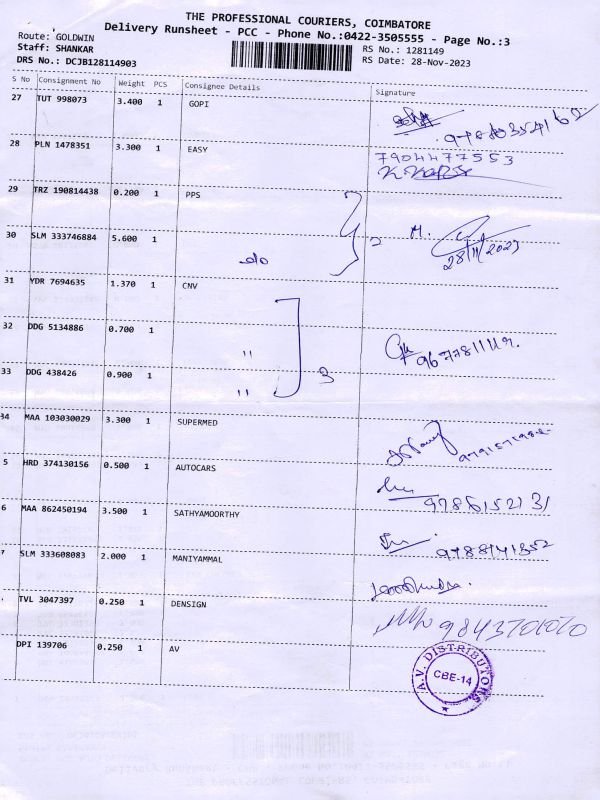 THE PROFESSIONAL COURIERS, COIMBATORE
Delivery Runsheet - PCC - Phone No.:0422-3505555 - Page No.:3
Route: GOLDWIN
Staff: SHANKAR
DRS No.: DCJB128114903
RS No.: 1281149
RS Date: 28-Nov-2023
S No Consignment No Weight PCS Consignee Details Signature
27 TUT 998073 3.400 1 GOPI
28 PLN 1478351 3.300 1 EASY 7904477553
29 TRZ 190814438 0.200 1 PPS
30 SLM 333746884 5.600 1 do 2 M. 28/11/2023
31 YDR 7694635 1.370 1 CNV
32 DDG 5134886 0.700 1 "
33 DDG 438426 0.900 1 " 3
34 MAA 103030029 3.300 1 SUPERMED
5 HRD 374130156 0.500 1 AUTOCARS 9786152131
6 MAA 862450194 3.500 1 SATHYAMOORTHY
7 SLM 333608083 2.000 1 MANIYAMMAL
TVL 3047397 0.250 1 DENSIGN
DPI 139706 0.250 1 AV
A.V. DISTRIBUTORS
CBE-14